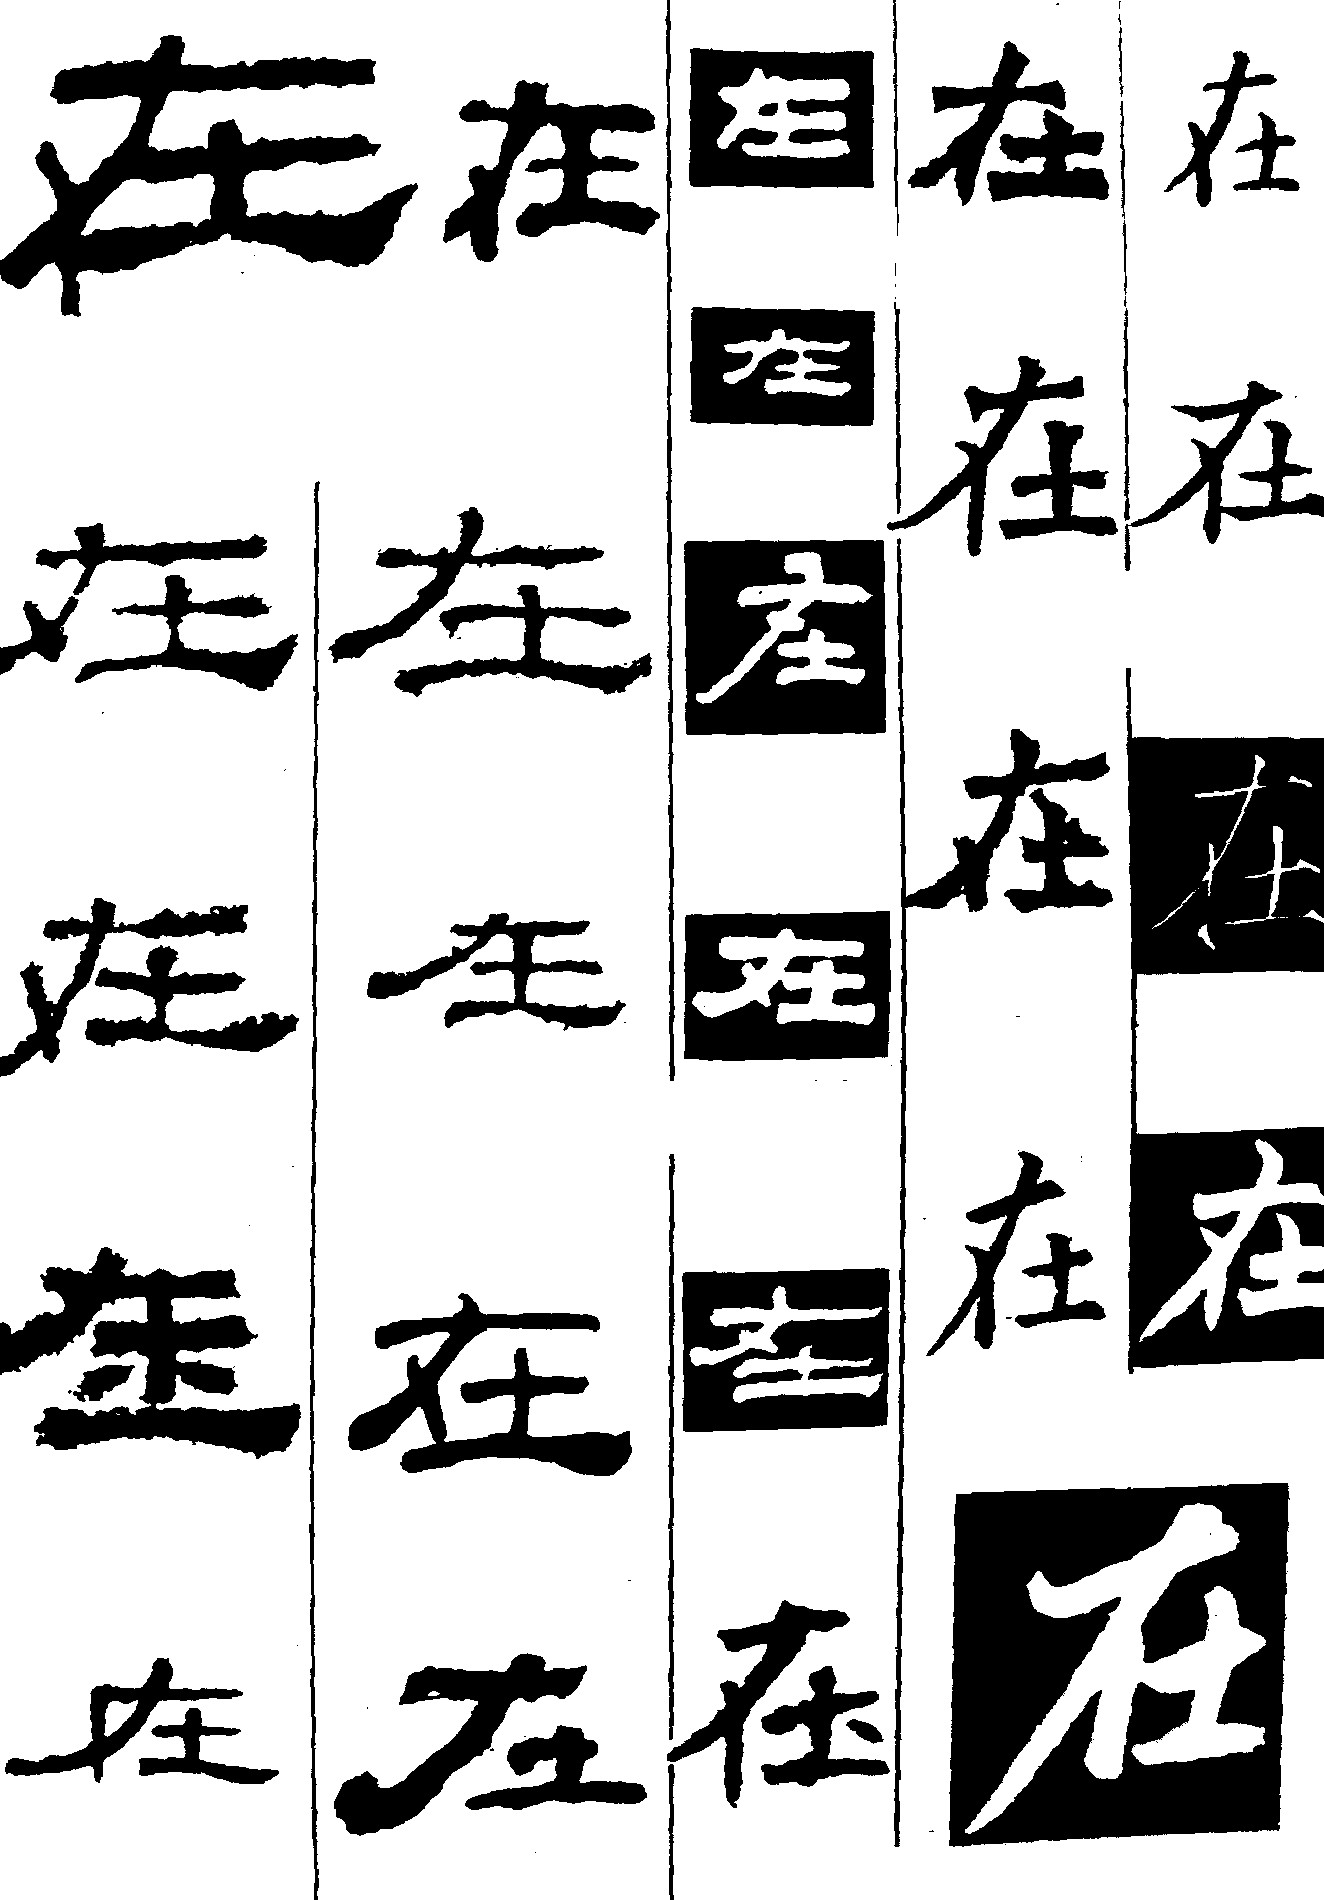 在在在在
在在在在在
在在在在在在
在在在在在
在在在在在